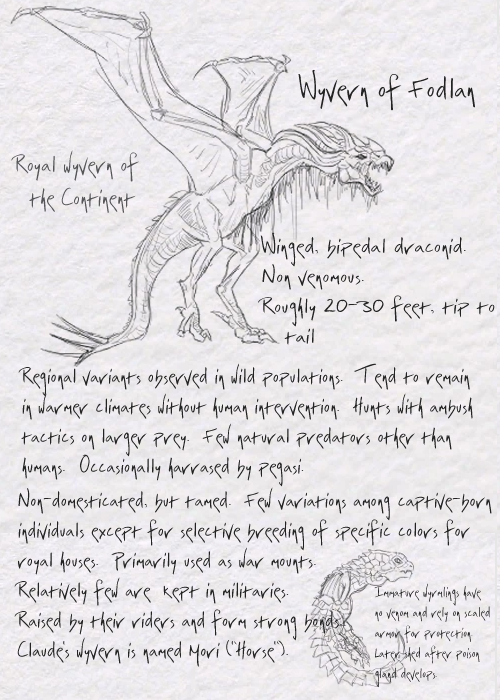 Wyvern of Fodlan
Royal Wyvern of
the Continent
Winged, bipedal draconid.
Non venomous.
Roughly 20-30 feet, tip to
tail
Regional variants observed in wild populations. Tend to remain
in warmer climates without human intervention. Hunts with ambush
tactics on larger prey. Few natural predators other than
humans. Occasionally harrased by pegasi.
Non-domesticated, but tamed. Few variations among captive-born
individuals except for selective breeding of specific colors for
royal houses. Primarily used as war mounts.
Relatively few are kept in militaries.
Raised by their riders and form strong bonds.
Claude's wyvern is named Mori ("Horse").
Immature wyrmlings have
no venom and rely on scaled
armor for protection.
Later shed after poison
gland develops.